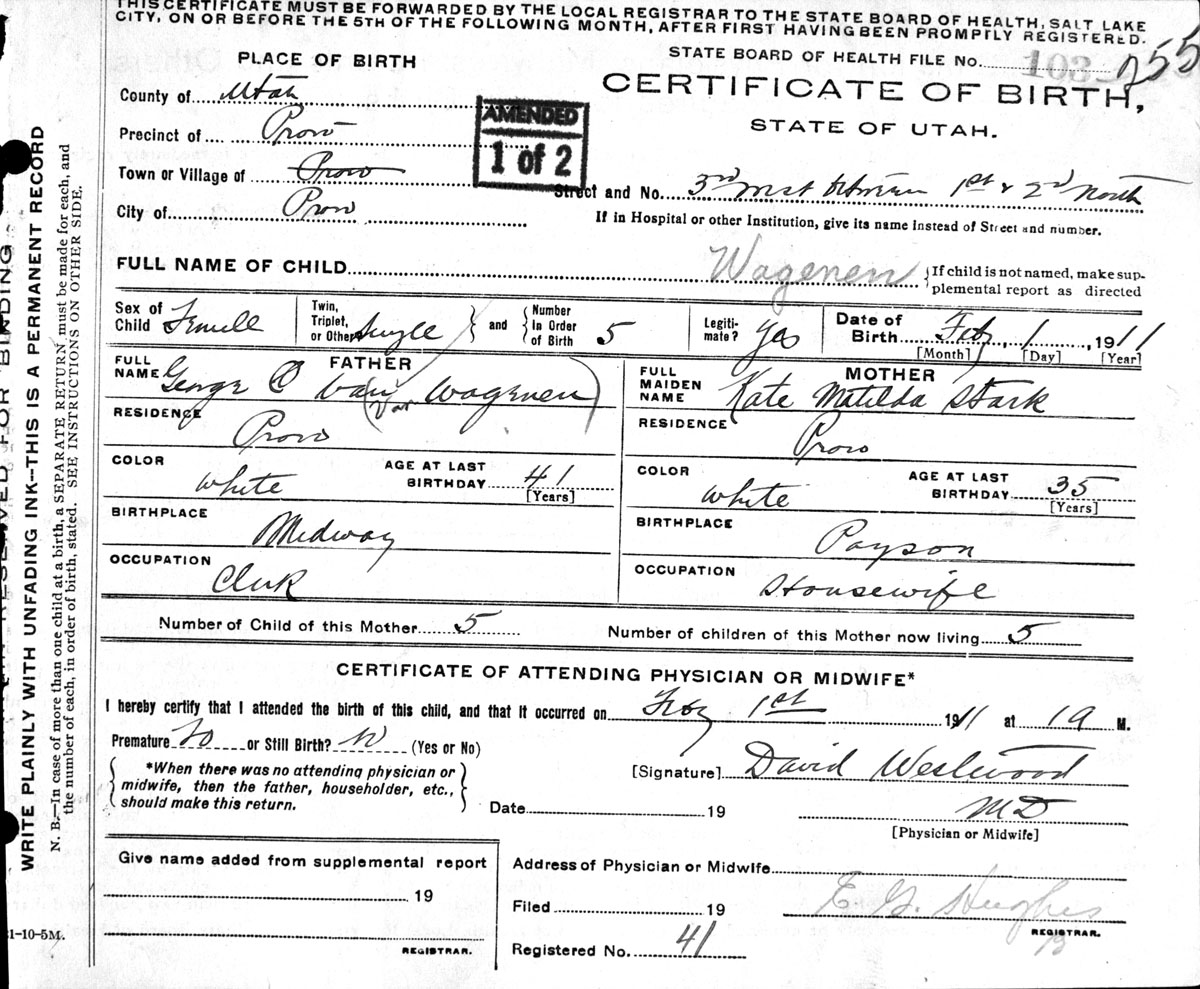 THIS CERTIFICATE MUST BE FORWARDED BY THE LOCAL REGISTRAR TO THE STATE BOARD OF HEALTH, SALT LAKE
CITY, ON OR BEFORE THE 5TH OF THE FOLLOWING MONTH, AFTER FIRST HAVING BEEN PROMPTLY REGISTERED.
PLACE OF BIRTH
STATE BOARD OF HEALTH FILE No. 103 255
CERTIFICATE OF BIRTH,
STATE OF UTAH.
County of Utah
AMENDED
1 of 2
Precinct of Provo
Town or Village of Provo
Street and No. 3rd West between 1st & 2nd North
City of Provo
If in Hospital or other Institution, give its name instead of Street and number.
FULL NAME OF CHILD Wagenen
{If child is not named, make sup-
plemental report as directed
Sex of Child Female
Twin, Triplet, or Other Single } and { Number In Order of Birth 5
Legiti-mate? Yes
Date of Birth Feby 1, 1911
[Month] [Day] [Year]
FATHER
FULL NAME George C Van Wagenen
(Van
RESIDENCE Provo
COLOR White
AGE AT LAST BIRTHDAY 41
[Years]
BIRTHPLACE Midway
OCCUPATION Clerk
MOTHER
FULL MAIDEN NAME Kate Matilda Stark
RESIDENCE Provo
COLOR White
AGE AT LAST BIRTHDAY 35
[Years]
BIRTHPLACE Payson
OCCUPATION Housewife
Number of Child of this Mother 5
Number of children of this Mother now living 5
CERTIFICATE OF ATTENDING PHYSICIAN OR MIDWIFE*
I hereby certify that I attended the birth of this child, and that it occurred on Feby 1st 1911 at 19 M.
Premature No or Still Birth? N (Yes or No)
{ *When there was no attending physician or
midwife, then the father, householder, etc.,
should make this return. }
[Signature] David Westwood
Date 19
MD
[Physician or Midwife]
Give name added from supplemental report
19
REGISTRAR.
Address of Physician or Midwife
Filed 19
E. G. Hughes
REGISTRAR.
Registered No. 41
21-10-5M.
RESERVED FOR BINDING
WRITE PLAINLY WITH UNFADING INK—THIS IS A PERMANENT RECORD
N. B.—In case of more than one child at a birth, a SEPARATE RETURN must be made for each, and
the number of each, in order of birth, stated. SEE INSTRUCTIONS ON OTHER SIDE.